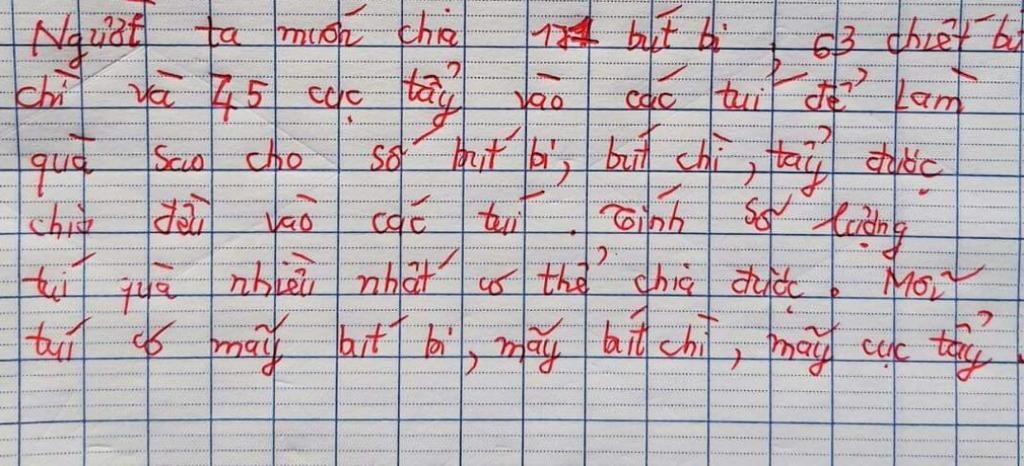 Người ta muốn chia 171 bút bi, 63 chiết bú
chì và 45 cục tẩy vào các túi để làm
quà sao cho số bút bi, bút chì, tẩy được
chia đều vào các túi. Tính số lượng
túi quà nhiều nhất có thể chia được. Mỗi
túi có mấy bút bi, mấy bút chì, mấy cục tẩy.